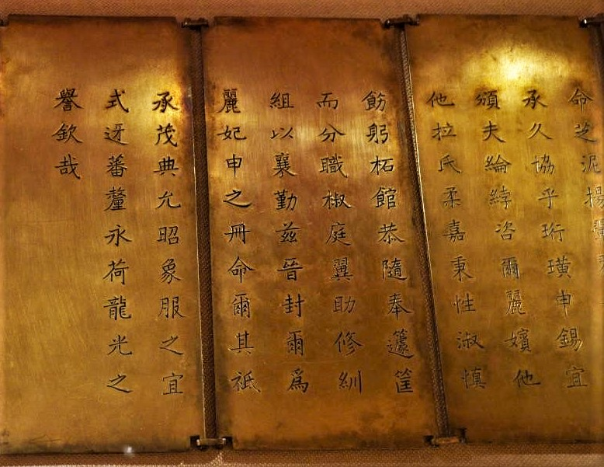 命芝泥揚
承久協乎珩璜申錫宜
頒夫綸綍咨爾麗嬪他
他拉氏柔嘉秉性淑慎
飭躬柘館恭隨奉籧筐
而分職椒庭翼助修紃
組以襄勤茲晉封爾爲
麗妃申之冊命爾其祗
承茂典允昭象服之宜
式迓蕃釐永荷龍光之
譽欽哉